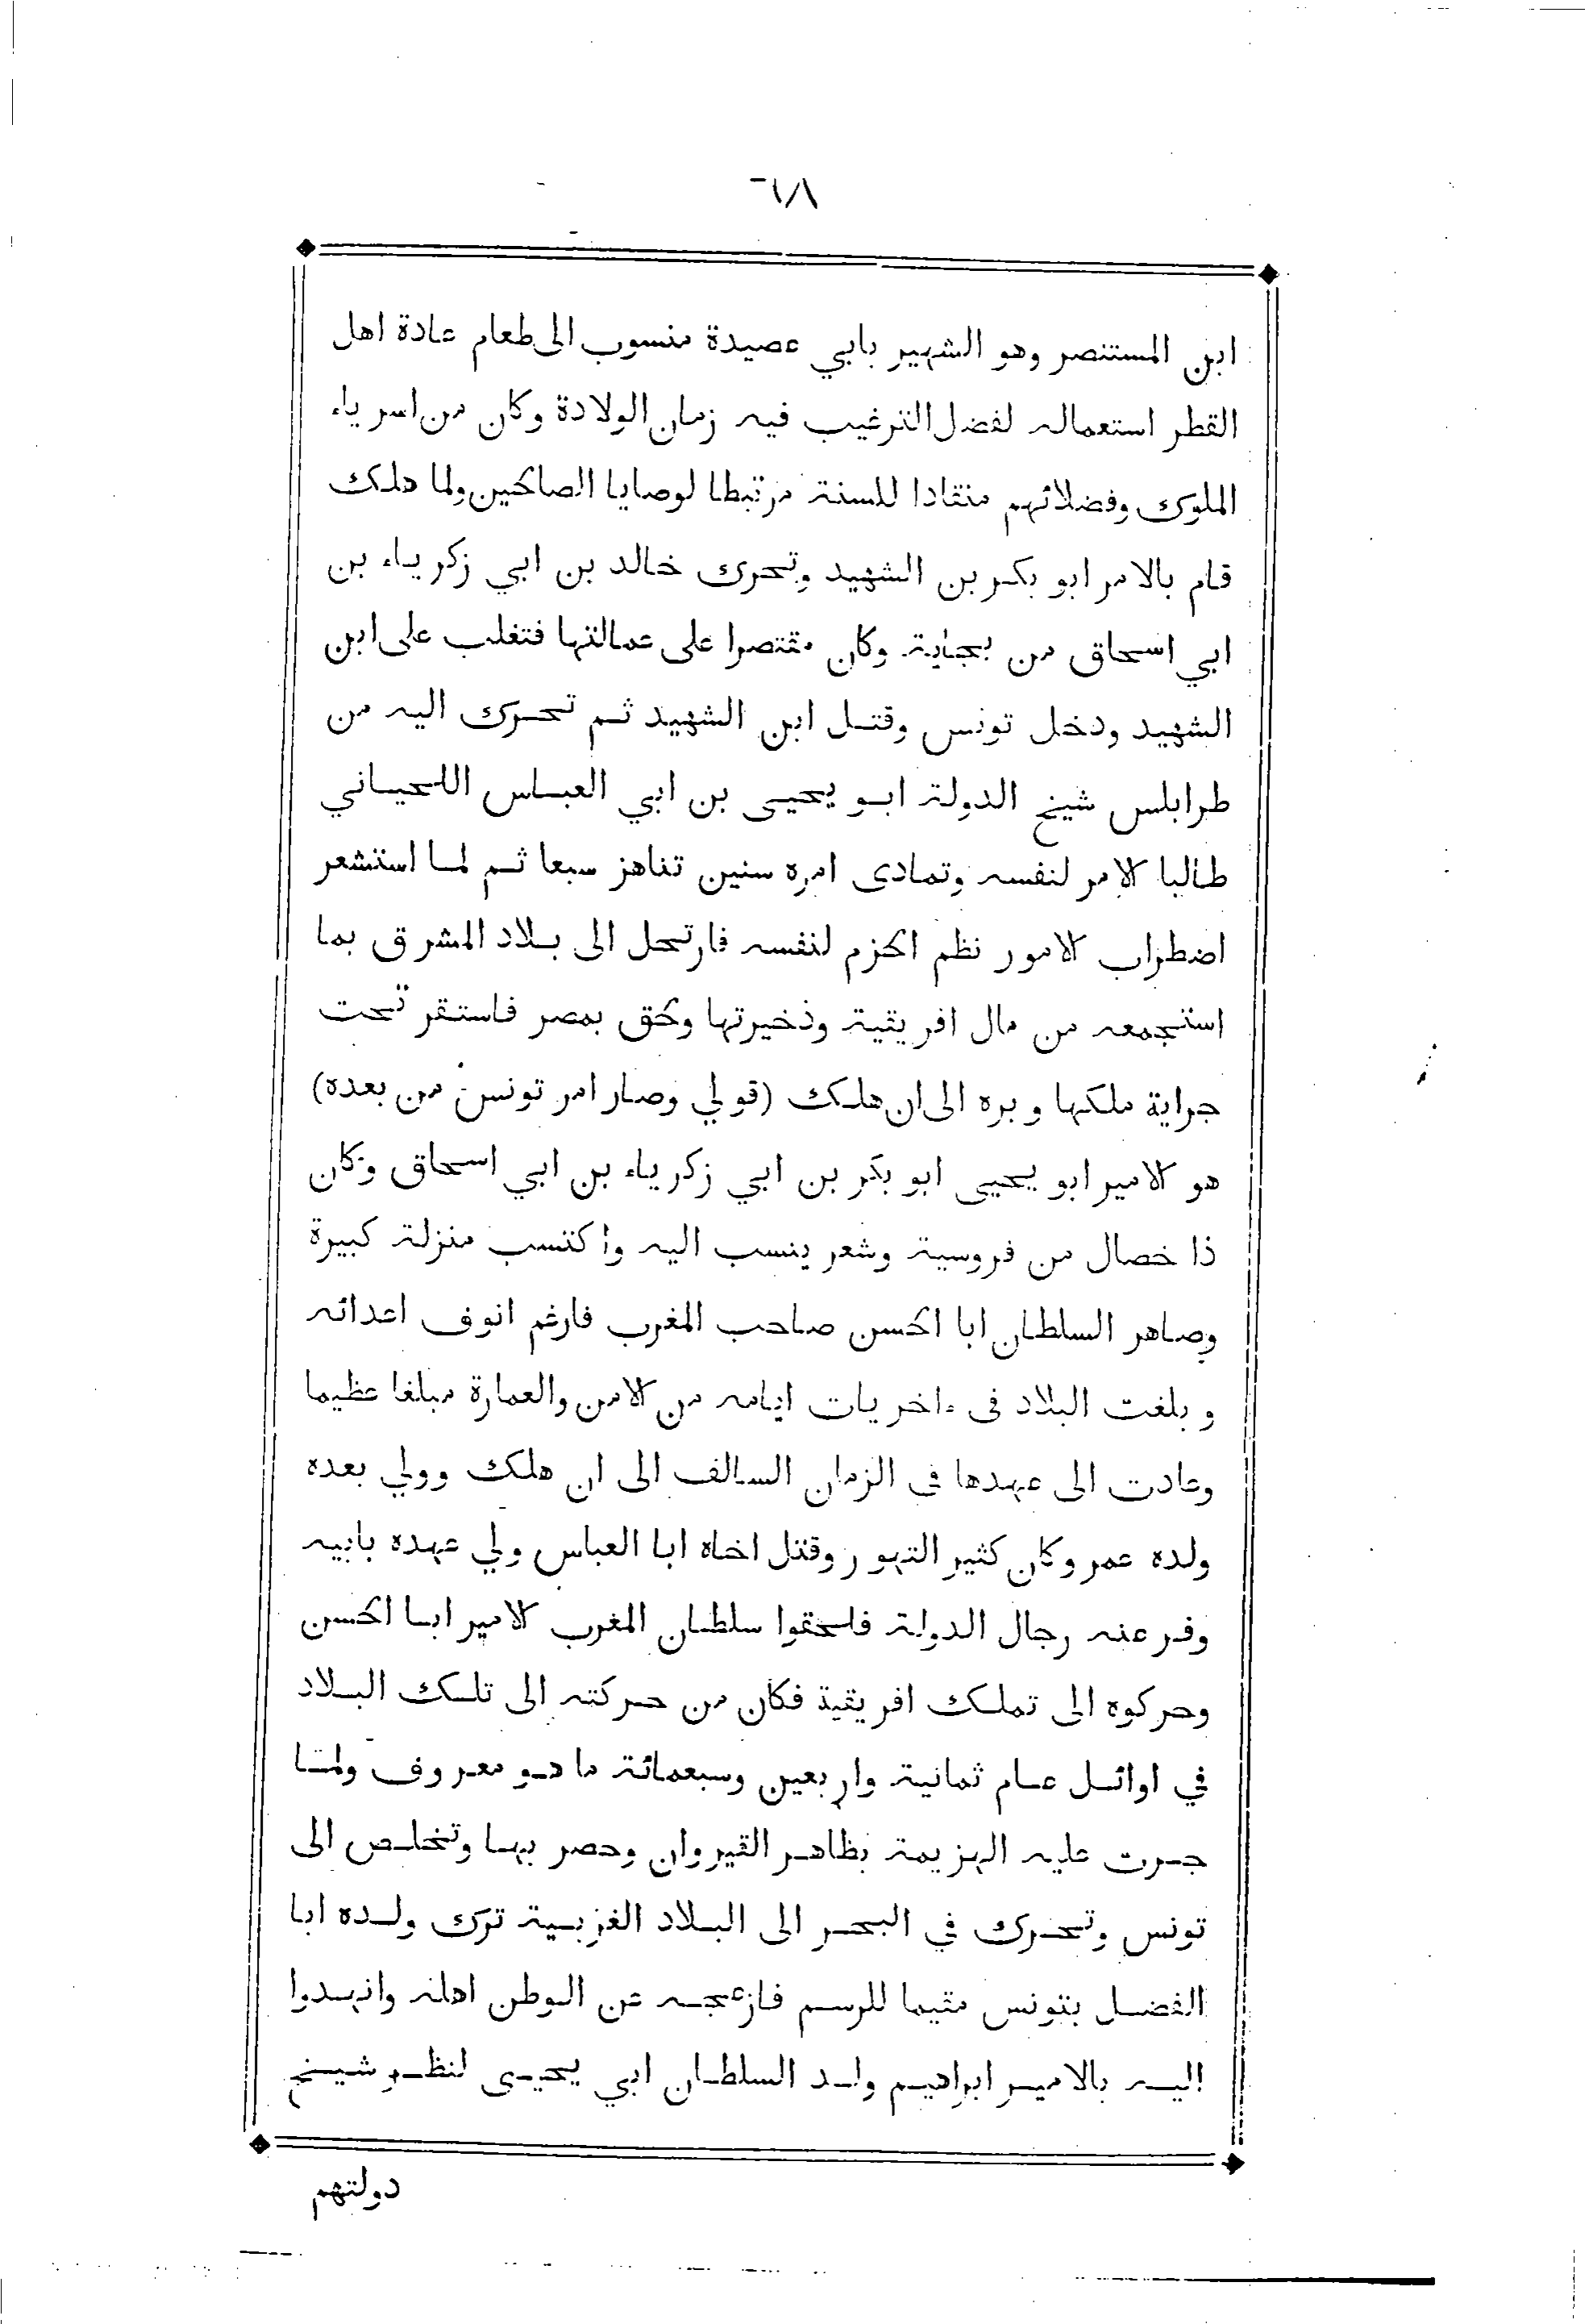 ٦٨
ابن المستنصر وهو الشهير بابي عصيدة منسوب الى طعام عادة اهل
القطر استعماله لفضل الترغيب فيه زمان الولادة وكان من اسرياء
الملوك وفضلائهم منقادا للسنة مرتبطا لوصايا الصالحين ولما هلك
قام بالامر ابو بكر بن الشهيد وتحرك خالد بن ابي زكرياء بن
ابي اسحاق من بجاية وكان مقتصرا على عمالتها فتغلب على ابن
الشهيد ودخل تونس وقتل ابن الشهيد ثم تحرك اليه من
طرابلس شيخ الدولة ابو يحيى بن ابي العباس اللحياني
طالبا الامر لنفسه وتمادى امره سنين تناهز سبعا ثم لما استشعر
اضطراب الامور نظم الحزم لنفسه فارتحل الى بلاد المشرق بما
استجمعه من مال افريقية وذخيرتها ولحق بمصر فاستقر تحت
جراية ملكها وبره الى ان هلك (قولي وصار امر تونس من بعده)
هو الامير ابو يحيى ابو بكر بن ابي زكرياء بن ابي اسحاق وكان
ذا خصال من فروسية وشعر ينسب اليه واكتسب منزلة كبيرة
وصاهر السلطان ابا الحسن صاحب المغرب فارغم انوف اعدائه
وبلغت البلاد فى ءاخريات ايامه من الامن والعمارة مبلغا عظيما
وعادت الى عهدها فى الزمان السالف الى ان هلك وولي بعده
ولده عمر وكان كثير التهور وقتل اخاه ابا العباس ولي عهده بابيه
وفر عنه رجال الدولة فلحقوا سلطان المغرب الامير ابا الحسن
وحركوه الى تملك افريقية فكان من حركته الى تلك البلاد
في اوائل عام ثمانية واربعين وسبعمائة ما هو معروف ولما
جرت عليه الهزيمة بظاهر القيروان وحصر بها وتخلص الى
تونس وتحرك في البحر الى البلاد الغربية ترك ولده ابا
الفضل بتونس مقيما للرسم فازعجه عن الوطن اهله وانهدوا
اليه بالامير ابراهيم ولد السلطان ابي يحيى لنظر شيخ
دولتهم